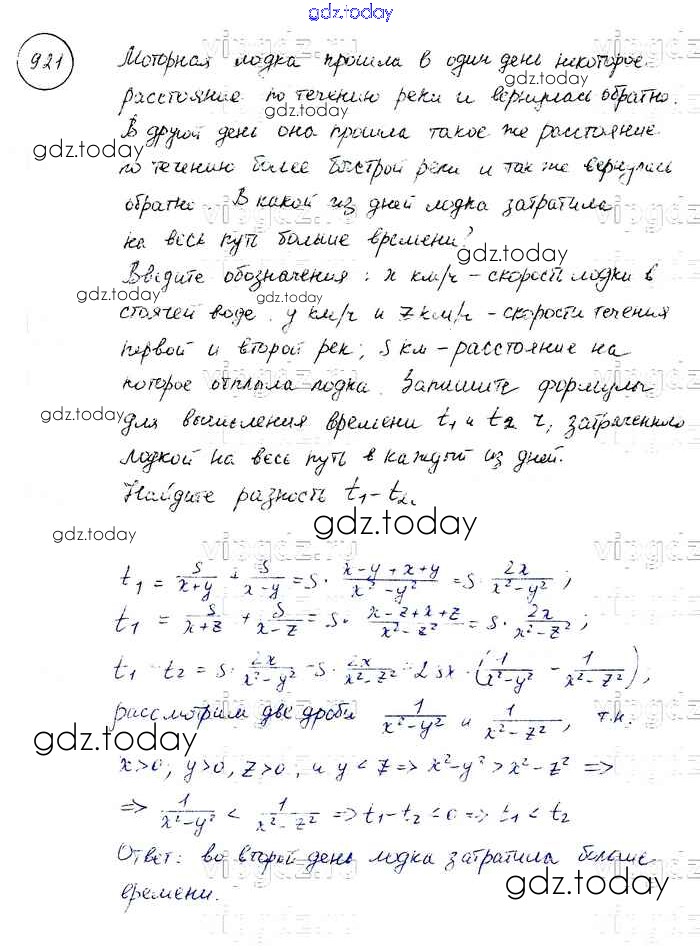 gdz.today
921 Моторная лодка прошла в один день некоторое
расстояние по течению реки и вернулась обратно.
В другой день она прошла такое же расстояние
gdz.today
по течению более быстрой реки и так же вернулась
обратно. В какой из дней лодка затратила
на весь путь больше времени?
gdz.today
Введите обозначения: x км/ч – скорость лодки в
gdz.today gdz.today
стоячей воде, y км/ч и z км/ч – скорости течения
первой и второй рек, S км – расстояние на
которое отплыла лодка. Запишите формулы
gdz.today
для вычисления времени t₁ и t₂ ч, затраченного
лодкой на весь путь в каждый из дней.
Найдите разность t₁ – t₂.
gdz.today
gdz.today
t₁ = S/(x+y) + S/(x-y) = S · (x-y+x+y)/(x²-y²) = S · 2x/(x²-y²);
t₁ = S/(x+z) + S/(x-z) = S · (x-z+x+z)/(x²-z²) = S · 2x/(x²-z²);
t₁ t₂ = S · 2x/(x²-y²) - S · 2x/(x²-z²) = 2sx · (1/(x²-y²) - 1/(x²-z²));
рассмотрим две дроби 1/(x²-y²) и 1/(x²-z²), т.к.
gdz.today
x>0, y>0, z>0, и y<z => x²-y² > x²-z² =>
=> 1/(x²-y²) < 1/(x²-z²) => t₁-t₂<0 => t₁<t₂
Ответ: во второй день лодка затратила больше
gdz.today
времени.